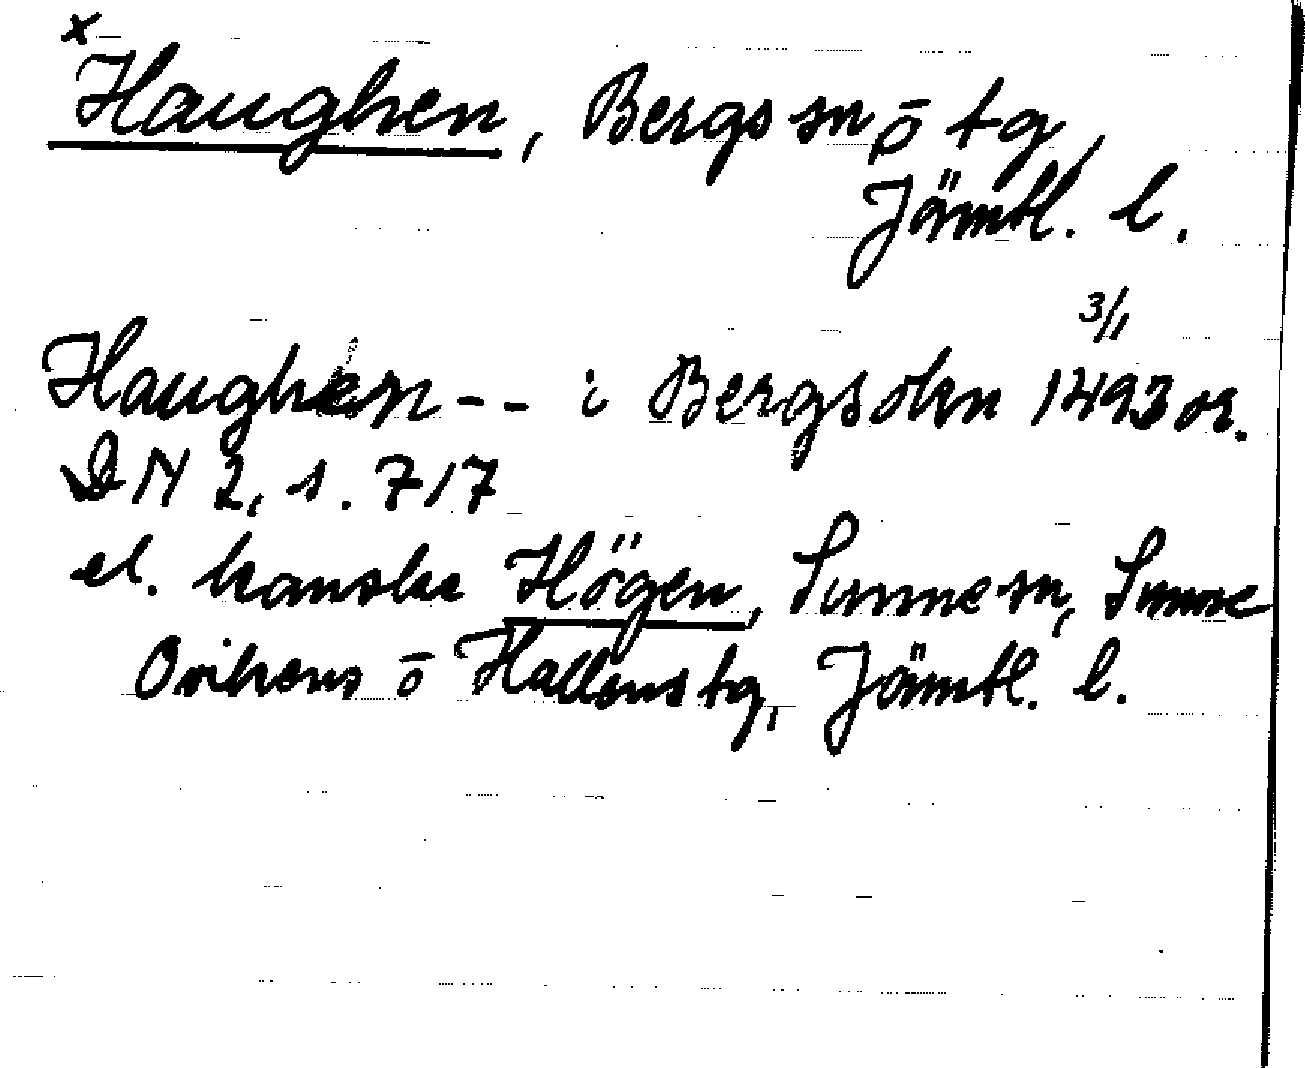 x
Haughen, Bergs sn ō tg,
Jämtl. l.
3/1
Haughen -- i Bergsokn 1493 or.
DN 2, s. 717
el. kanske Högen, Sunne sn, Sunne
Ovikens ō Hallens tg, Jämtl. l.